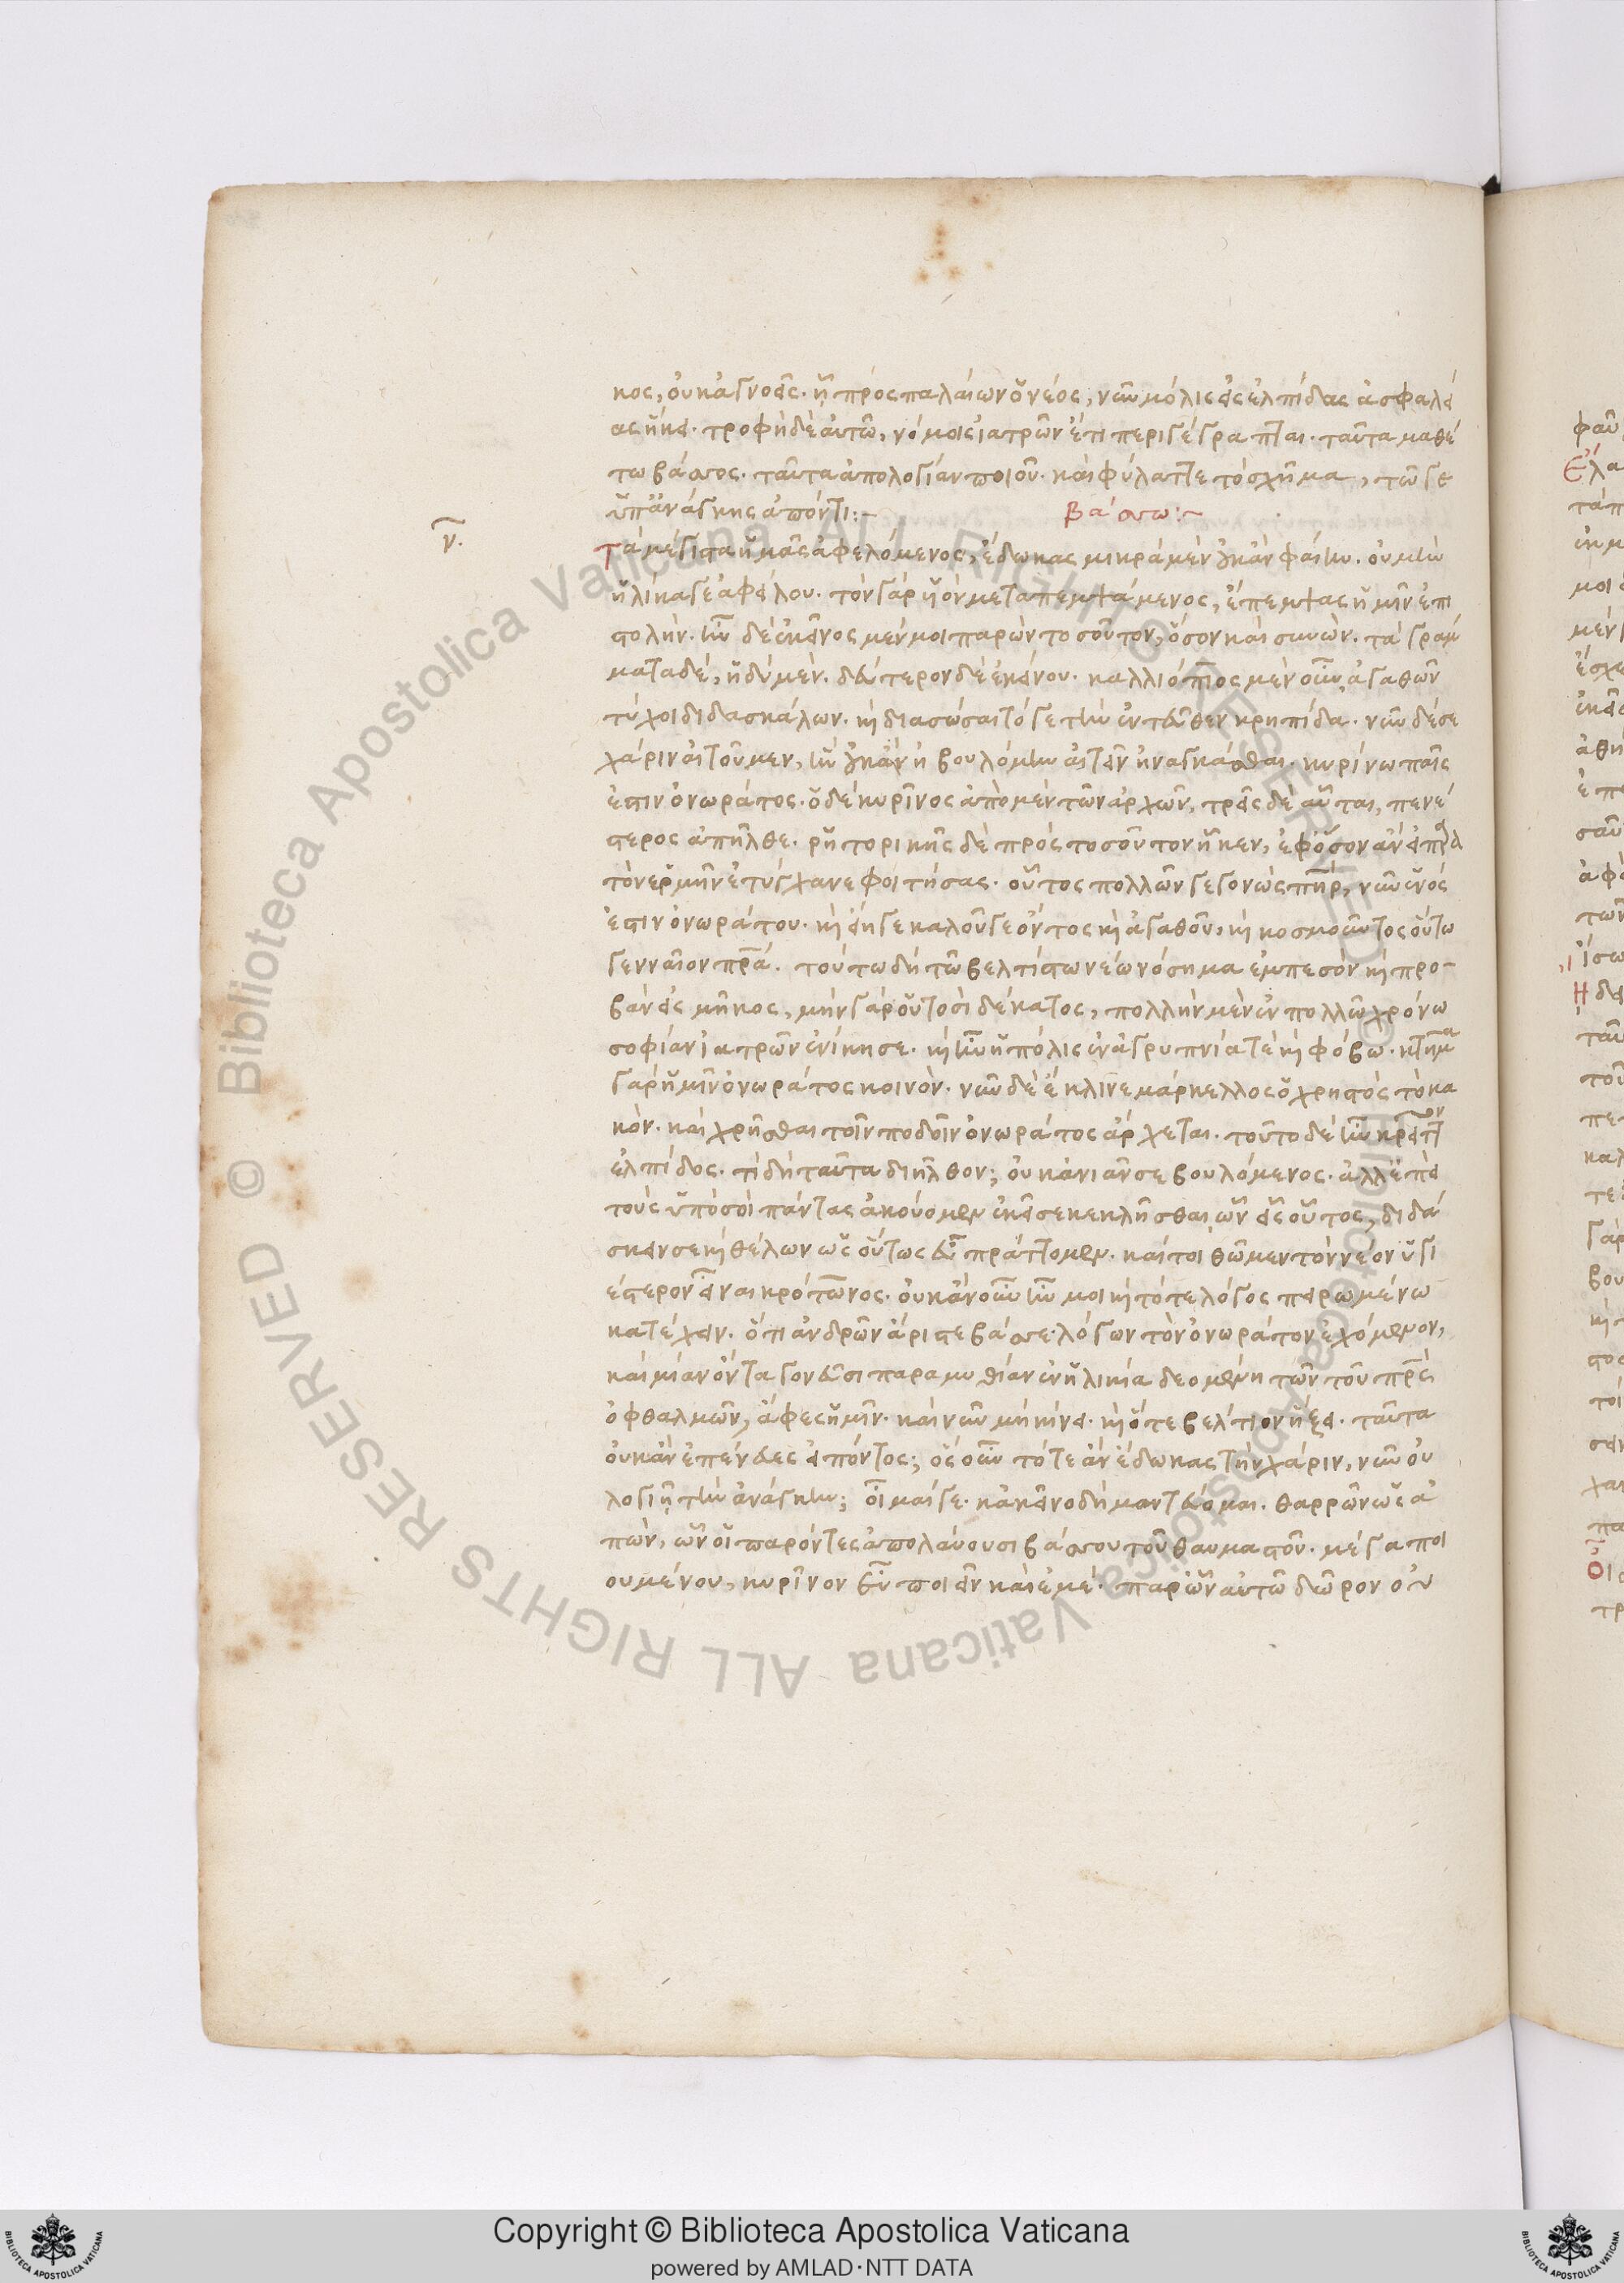 κος, οὐκ ἀγνοεῖς. ᾗ πρὸς παλαίων ὁ νέος, νῦν μόλις εἰς ἐλπίδας ἀσφαλεῖ
ας ἥκει. τροφὴ δὲ αὐτῶ, νόμοις ἰατρῶν ἔτι περιγέγραπται. ταῦτα μαθέ
τω βάσσος. ταῦτα ἀπολογίαν ποιοῦ. καὶ φύλαττε τὸ σχῆμα, τῶ γε
ὑπ' ἀνάγκης ἀπόντι:~ βάσσω:~
ν.
Τὰ μέγιστα ἡμᾶς ἀφελόμενος, ἔδωκας μικρὰ μὲν οὐκ ἂν φαίην. οὐ μὴν
ἡλίκα γε ἀφείλου. τὸν γὰρ υἱὸν μεταπεμψάμενος, ἔπεμψας ἡμῖν ἐπι
στολήν. ἦν δὲ ἐκεῖνος μέν μοι παρὼν τοσοῦτον, ὅσον καὶ συνών. τὰ γράμ
ματα δέ, ἡδὺ μέν. δεύτερον δὲ ἐκείνου. καλλιόπιος μὲν οὖν ἀγαθῶν
τύχοι διδασκάλων. κὶ διασώσαιτό γε τὴν ἐντεῦθεν κρηπῖδα. νῦν δέ σε
χάριν αἰτοῦμεν, ἣν οὐκ ἂν ᾗ βουλόμην αἰτεῖν ἠναγκάσθαι. κυρίνω παῖς
ἐστιν ὀνωράτος. ὁ δὲ κυρῖνος ἀπὸ μὲν τῶν ἀρχῶν, τρεῖς δὲ αὗται, πενέ
στερος ἀπῆλθε. ῥητορικῆς δὲ πρὸς τοσοῦτον ἧκεν, ἐφ' ὅσον ἂν εἰ παρὰ
τὸν ἑρμῆν ἐτύγχανε φοιτήσας. οὗτος πολλῶν γεγονὼς πηρ, νῦν ἑνός
ἐστιν ὀνωράτου. κὶ εἴη γε καλοῦ γε ὄντος κὶ ἀγαθοῦ, κὶ κοσμοῦντος οὕτω
γενναῖον πρα. τούτω δὴ τῶ βελτίστω νέω νόσημα ἐμπεσὸν κὶ προ-
βὰν εἰς μῆκος, μὴν γὰρ οὑτοσὶ δέκατος, πολλὴν μὲν ἐν πολλῶ χρόνω
σοφίαν ἰατρῶν ἐνίκησε. κὶ ἦν ἡ πόλις ἐν ἀγρυπνία τὲ κὶ φόβω. κτῆμα
γὰρ ἡμῖν ὀνωράτος κοινόν. νῦν δὲ ἔκλινε μάρκελλος ὁ χρηστὸς τὸ κα
κόν. καὶ χρῆσθαι τοῖν ποδοῖν ὀνωράτος ἄρχεται. τοῦτο δὲ ἦν κρεῖττον
ἐλπίδος. τί δὴ ταῦτα διῆλθον; οὐκ ἀνιᾶν σε βουλόμενος. ἀλλ' ἐπεὶ
τοὺς ὑπό σοι πάντας ἀκούομεν ἐκεῖσε κεκλῆσθαι, ὧν εἷς οὗτος, διδά
σκειν σε κὶ θέλων ὡς οὕτως εὖ πράττομεν. καίτοι θῶμεν τὸν νέον ὑγι
έστερον εἶναι κρότωνος. οὐκ ἂν οὖν ἦν μοι κὶ τότε λόγος πειρωμένω
κατέχειν. ὅτι ἀνδρῶν ἄριστε βάσσε λόγων τὸν ὀνωράτον ἐχόμενον,
καὶ μίαν ὄντα γονεῦσι παραμυθίαν ἐν ἡλικία δεομένη τῶν τοῦ πρς
ὀφθαλμῶν, ἄφες ἡμῖν. καὶ νῦν μὴ κίνει. κὶ ὅτε βέλτιον ἥξει. ταῦτα
οὐκ ἂν ἐπένευες εἰπόντος; ὃς οὖν τότε ἂν ἔδωκας τὴν χάριν, νῦν οὐ
λογιῇ τὴν ἀνάγκην; οἶμαί γε. κἀκεῖνο δὴ μαντεύομαι. θαρρῶν ὡς ἀ
πών, ὧν οἱ παρόντες ἀπολαύουσι βάσσου τοῦ θαυμαστοῦ. μέγα ποι
ουμένου, κυρῖνον εὖ ποιεῖν καὶ ἐμέ. παρ' ὧν αὐτῶ δῶρον οὐ